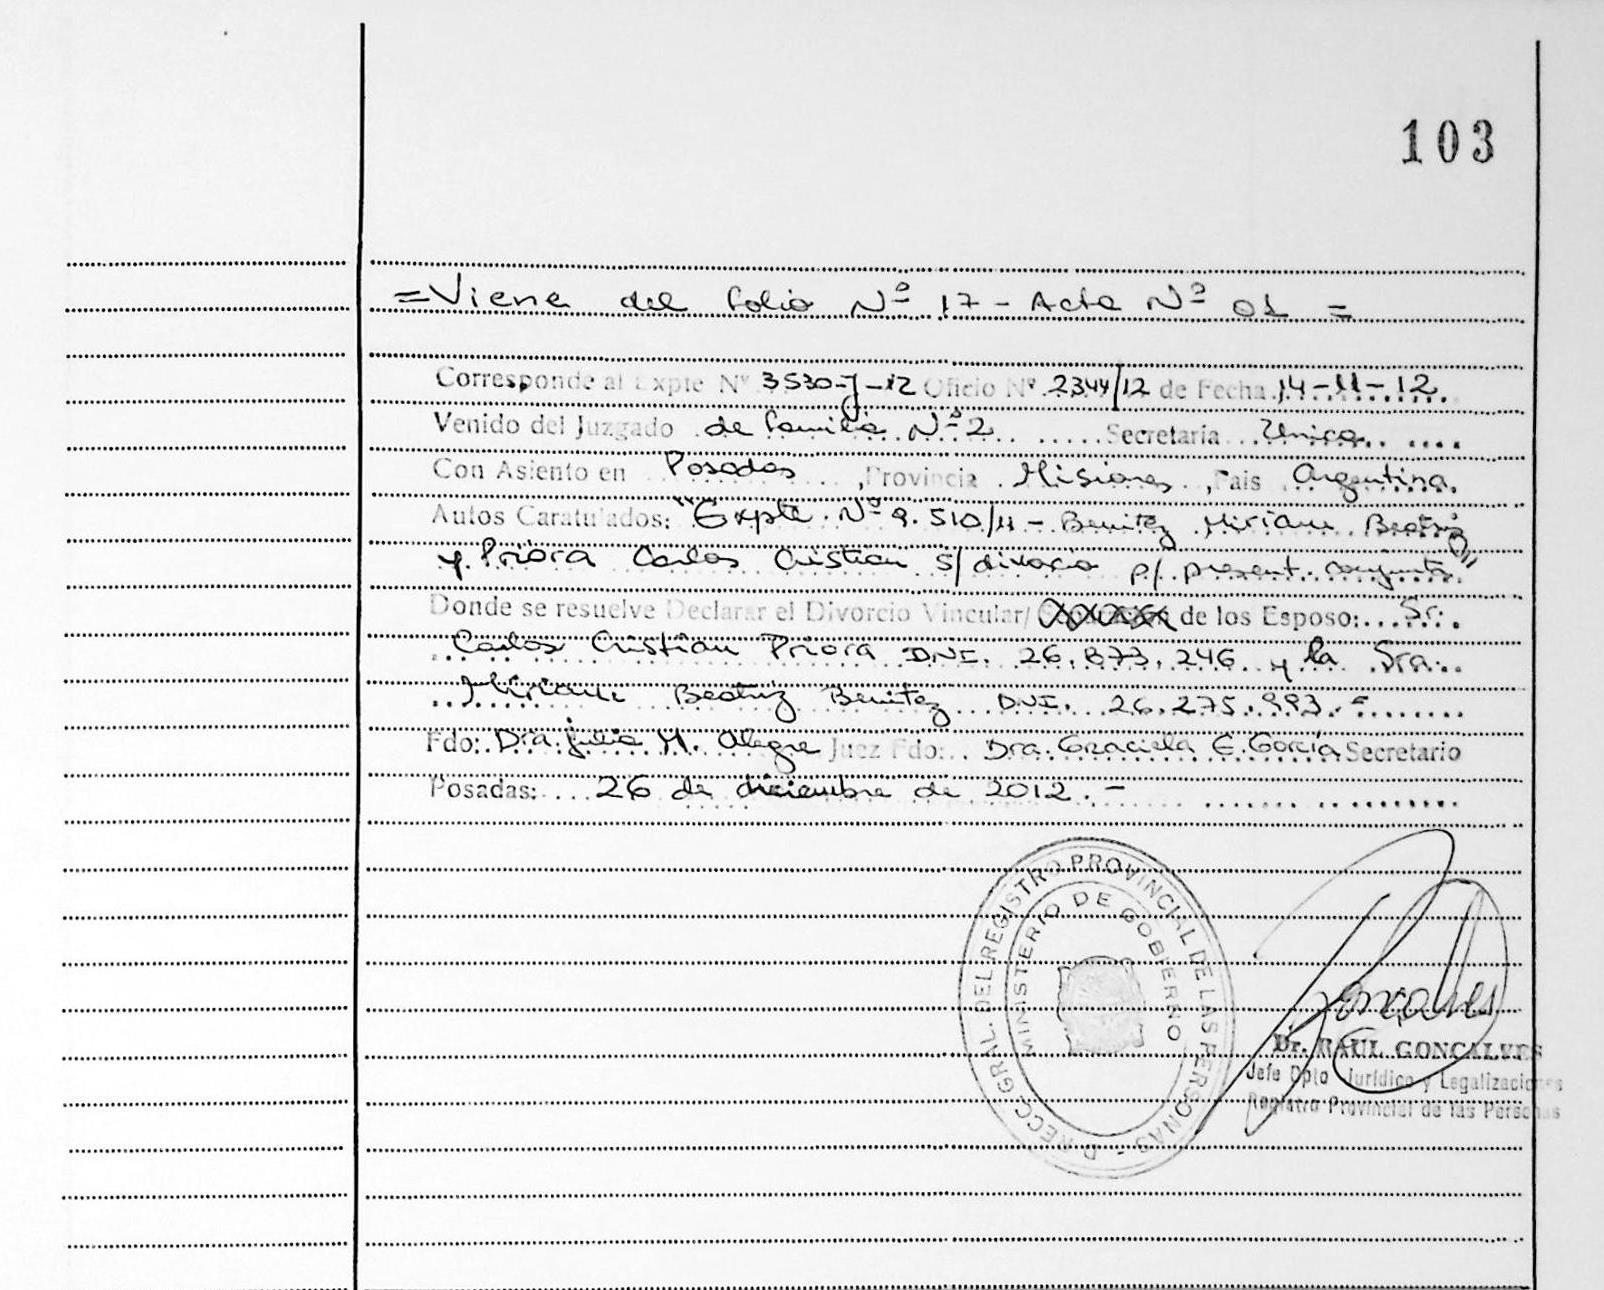 103
=Viene del folio Nº 17 - Acta Nº 01 =
Corresponde al Expte Nº 3530-J-12 Oficio Nº 2344/12 de Fecha 14-11-12.
Venido del Juzgado de familia Nº 2 Secretaria Unica
Con Asiento en Posadas, Provincia Misiones, País Argentina.
Autos Caratulados: "Expte. Nº 9.510/11 - Benitez Miriam Beatriz
y Priora Carlos Cristian s/ divorcio p/ present. conjunta"
Donde se resuelve Declarar el Divorcio Vincular/ de los Esposo: Sr.
Carlos Cristian Priora DNI. 26.873.246 y la Sra.
Miriam Beatriz Benitez DNI. 26.275.993.=
Fdo: Dra. Julia M. Alegre Juez Fdo: Dra. Graciela E. García Secretario
Posadas: 26 de diciembre de 2012.-
DIRECC. GRAL. DEL REGISTRO PROVINCIAL DE LAS PERSONAS
MINISTERIO DE GOBIERNO
Dr. RAUL GONCALVES
Jefe Dpto Jurídico y Legalizaciones
Registro Provincial de las Personas